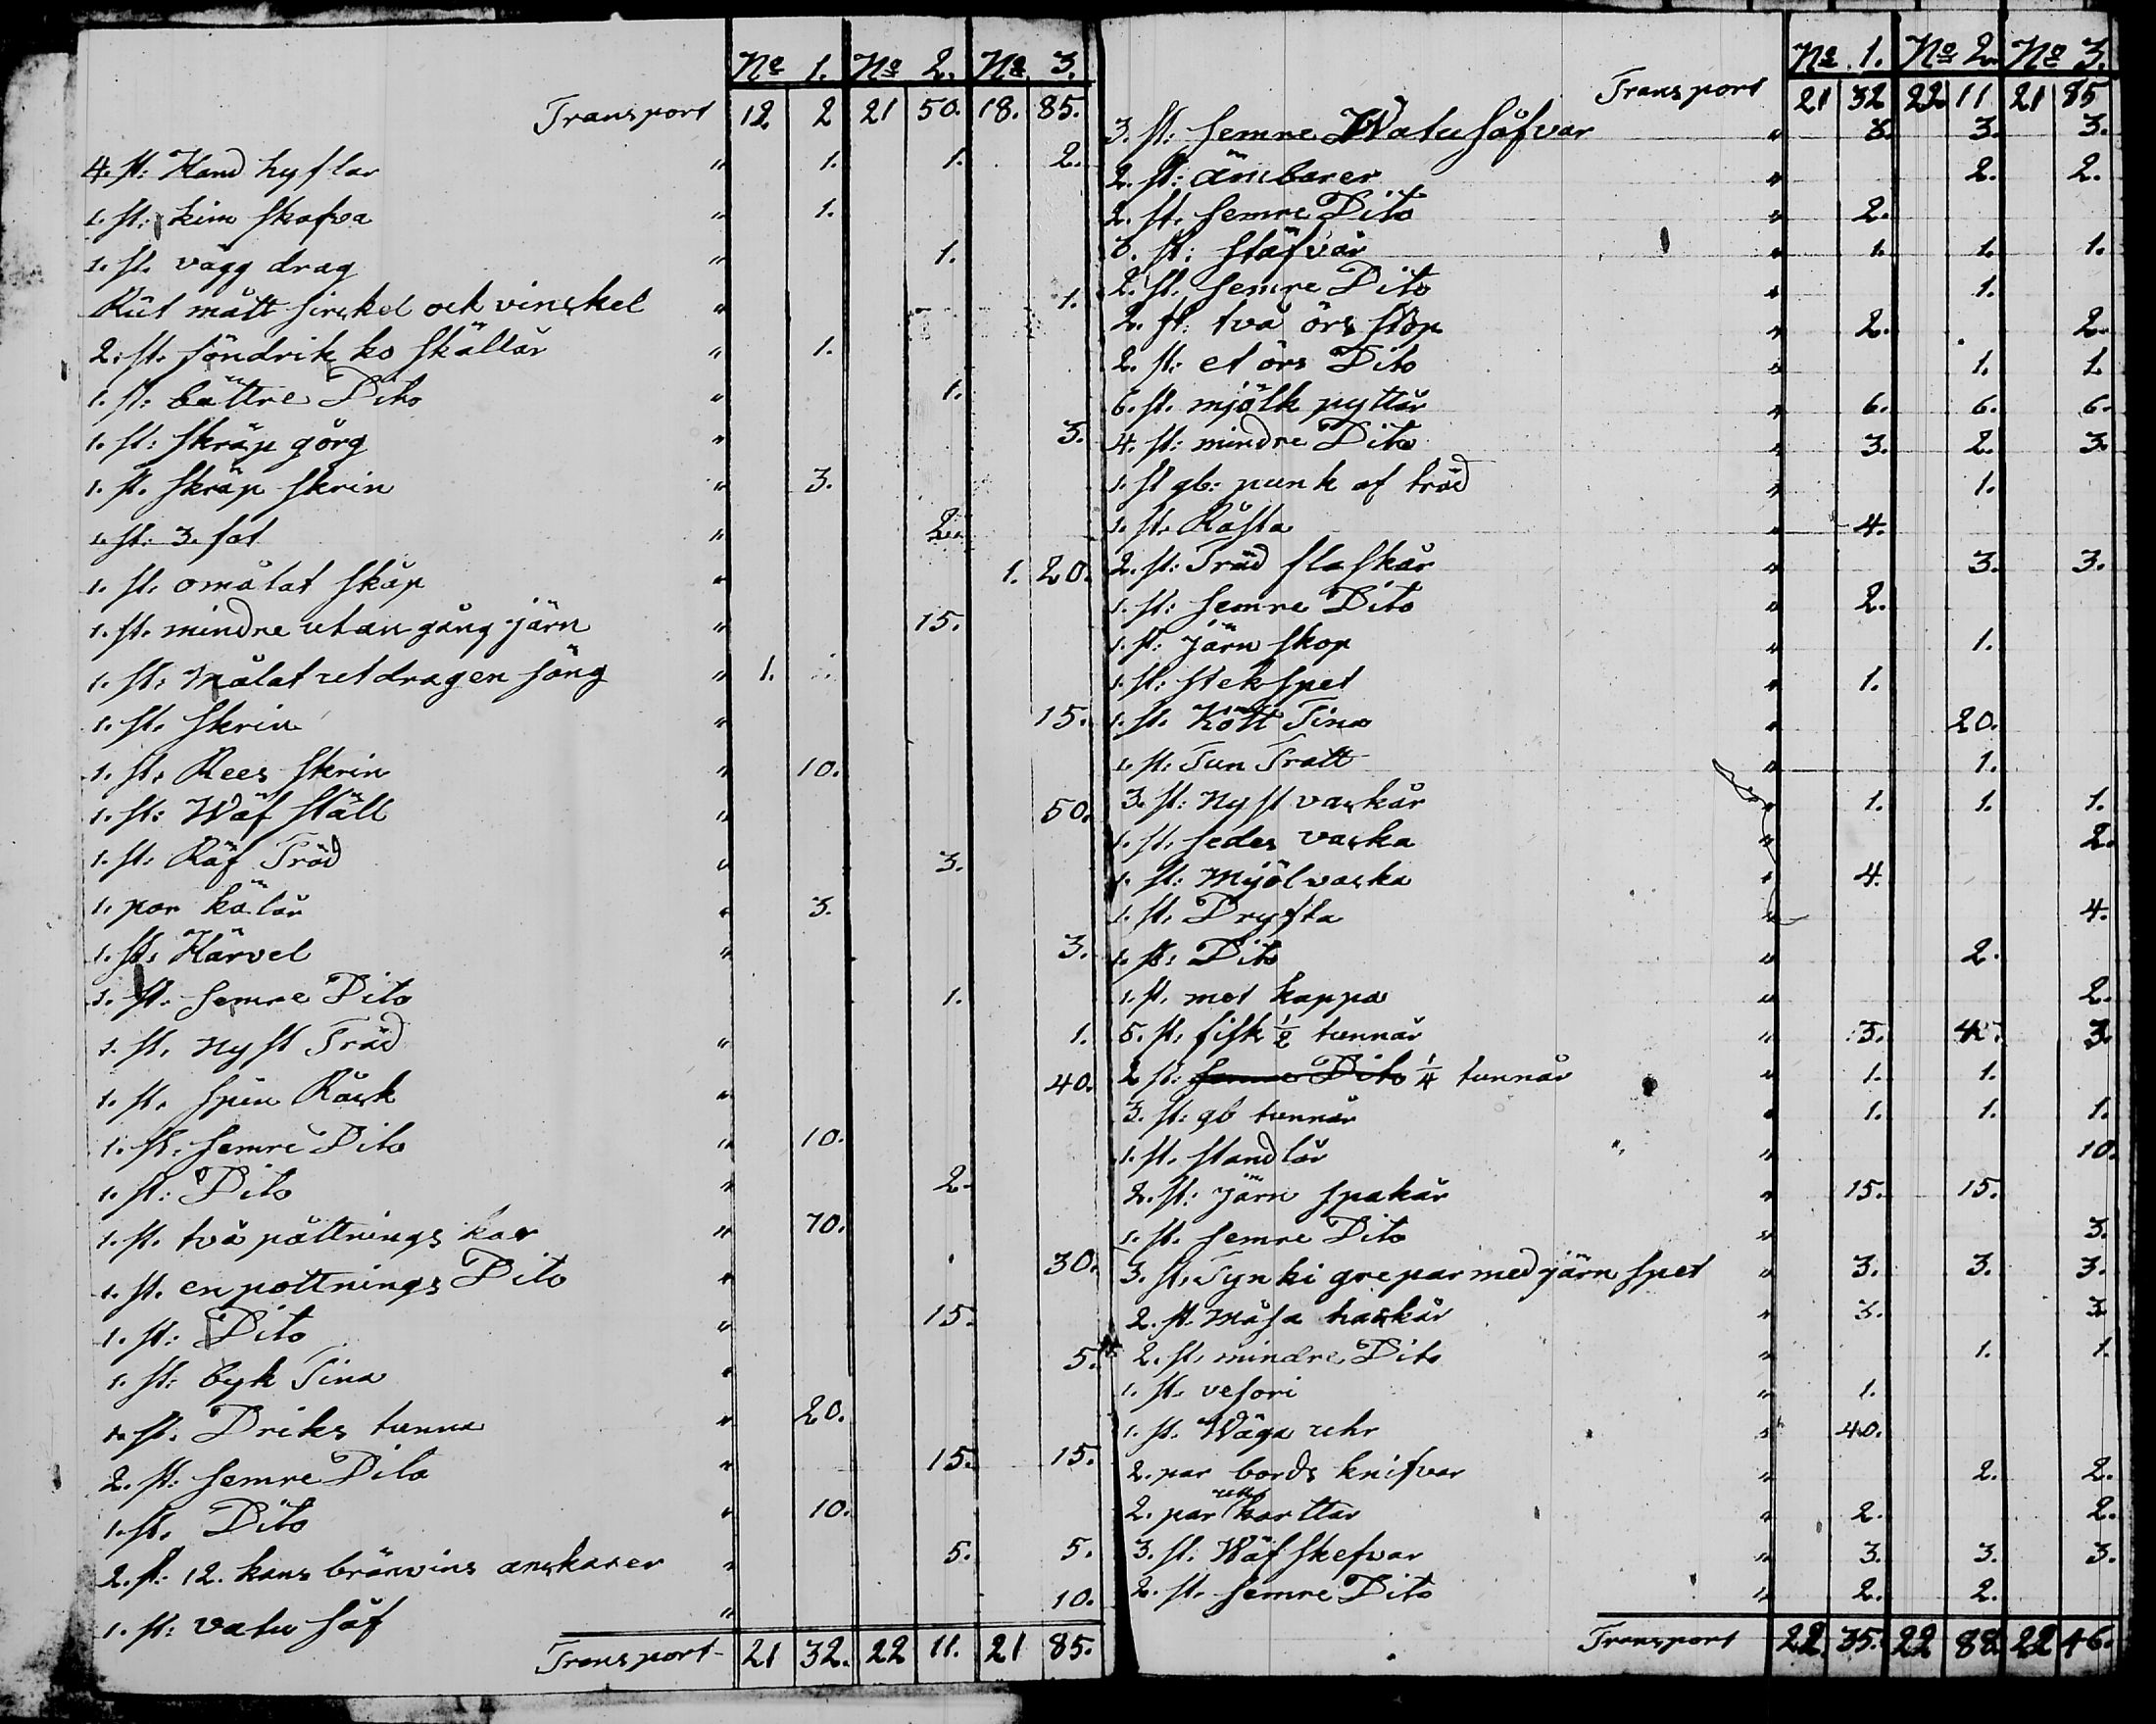 No 1. No 2. No 3.
Transport 12 2 21 50. 18. 85.
4. st: Hand hyflar " 1. 1. 2.
1. st: kim skafva " 1.
1. st. vägg drag " 1.
Rut mått sirckel och vinckel " 1.
2. st. söndrik ko skällår " 1.
1. st: bättre Dito " 1.
1. st: skräp görg " 3.
1. st. skräp skrin " 3.
1. st: 3. fat " 2.
1. st. omålat skåp " 1. 20.
1. st. mindre utan gång järn " 15.
1. st: målat utdragen säng " 1.
1. st. skrin " 15.
1. st. Rees skrin " 10.
1. st: Wäf ställ " 50.
1. st: Räf Träd " 3.
1. par kälar " 3.
1. st. Härvel " 3.
1. st. semre Dito 1.
1. st. nyst Träd " 1.
1. st. spin Råck " 40.
1. st. semre Dito " 10.
1. st: Dito " 2.
1. st. två påttnings kar " 70.
1. st. en pottnings Dito " 30.
1. st: Dito " 15.
1. st: byk Tina " 5.
1. st. Driks tunna " 20.
2. st: semre Dito " 15. 15.
1. st. Dito " 10.
2. st: 12. kans bränvins anckarer " 5. 5.
1. st: vatu såf " 10.
Transport 21 32. 22 11. 21 85.
No 1. No 2. No 3.
Transport 21 32 22 11 21 85
3. st: semre Watu såfvar " 3. 3. 3.
2. st: ämbarer " 2. 2.
2. st. semre Dito " 2.
st: stäfvar " 1. 1. 1.
2. st. semre Dito " 1.
2. st: två örs stop " 2. 2.
2. st: et örs Dito " 1. 1.
6. st. mjölk pyttår " 6. 6. 6.
4. st: mindre Dito " 3. 2. 3.
1. st gb: punk af träd " 1.
1. st. Råsta " 4.
2. st: Träd flaskår " 3. 3.
1. st: semre Dito " 2.
1. st: järn skop " 1.
1. st: stekspet " 1.
1. st. Kött Tina " 20.
1. st: Tun Tratt " 1.
3. st: nyst vackår " 1. 1. 1.
1. st. sedes vacka " 2.
1. st: Mjöl vacka " 4.
1. st. Dryfta " 4.
1. st: Dito " 2.
1. st. mot kappa " 2.
5. st. fisk ½ tunnår " 3. 4. 3.
2 st: semre Dito ¼ tunnår " 1. 1.
3. st: gb tunnår " 1. 1. 1.
1. st. standlår " 10.
2. st: järn spakår " 15. 15.
1. st. semre Dito " 3.
3. st. Tynki grepar med järn spet " 3. 3. 3.
2. st. måsa hackår " 3. 3
2. st. mindre Dito " 1. 1.
1. st. vesori " 1.
1. st. Wäga uhr " 40.
2. par bords knifvar " 2. 2.
2. par ull karttar " 2. 2.
3. st: Wäf skefvar " 3. 3. 3.
2. st. semre Dito " 2. 2.
Transport 22. 35. 22 88. 22 46.